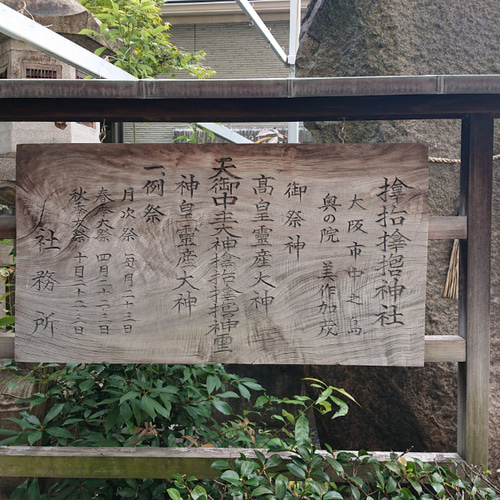 𪮷抬𪮷𪮇神社
大阪市中之島
奥の院 美作加茂
御祭神
高皇霊産大神
天御中主大神𪮷抬𪮷𪮇神霊
神皇霊産大神
一、例祭
月次祭 毎月二十三日
春季大祭 四月二十二・二十三日
秋季大祭 十月二十二・二十三日
社務所